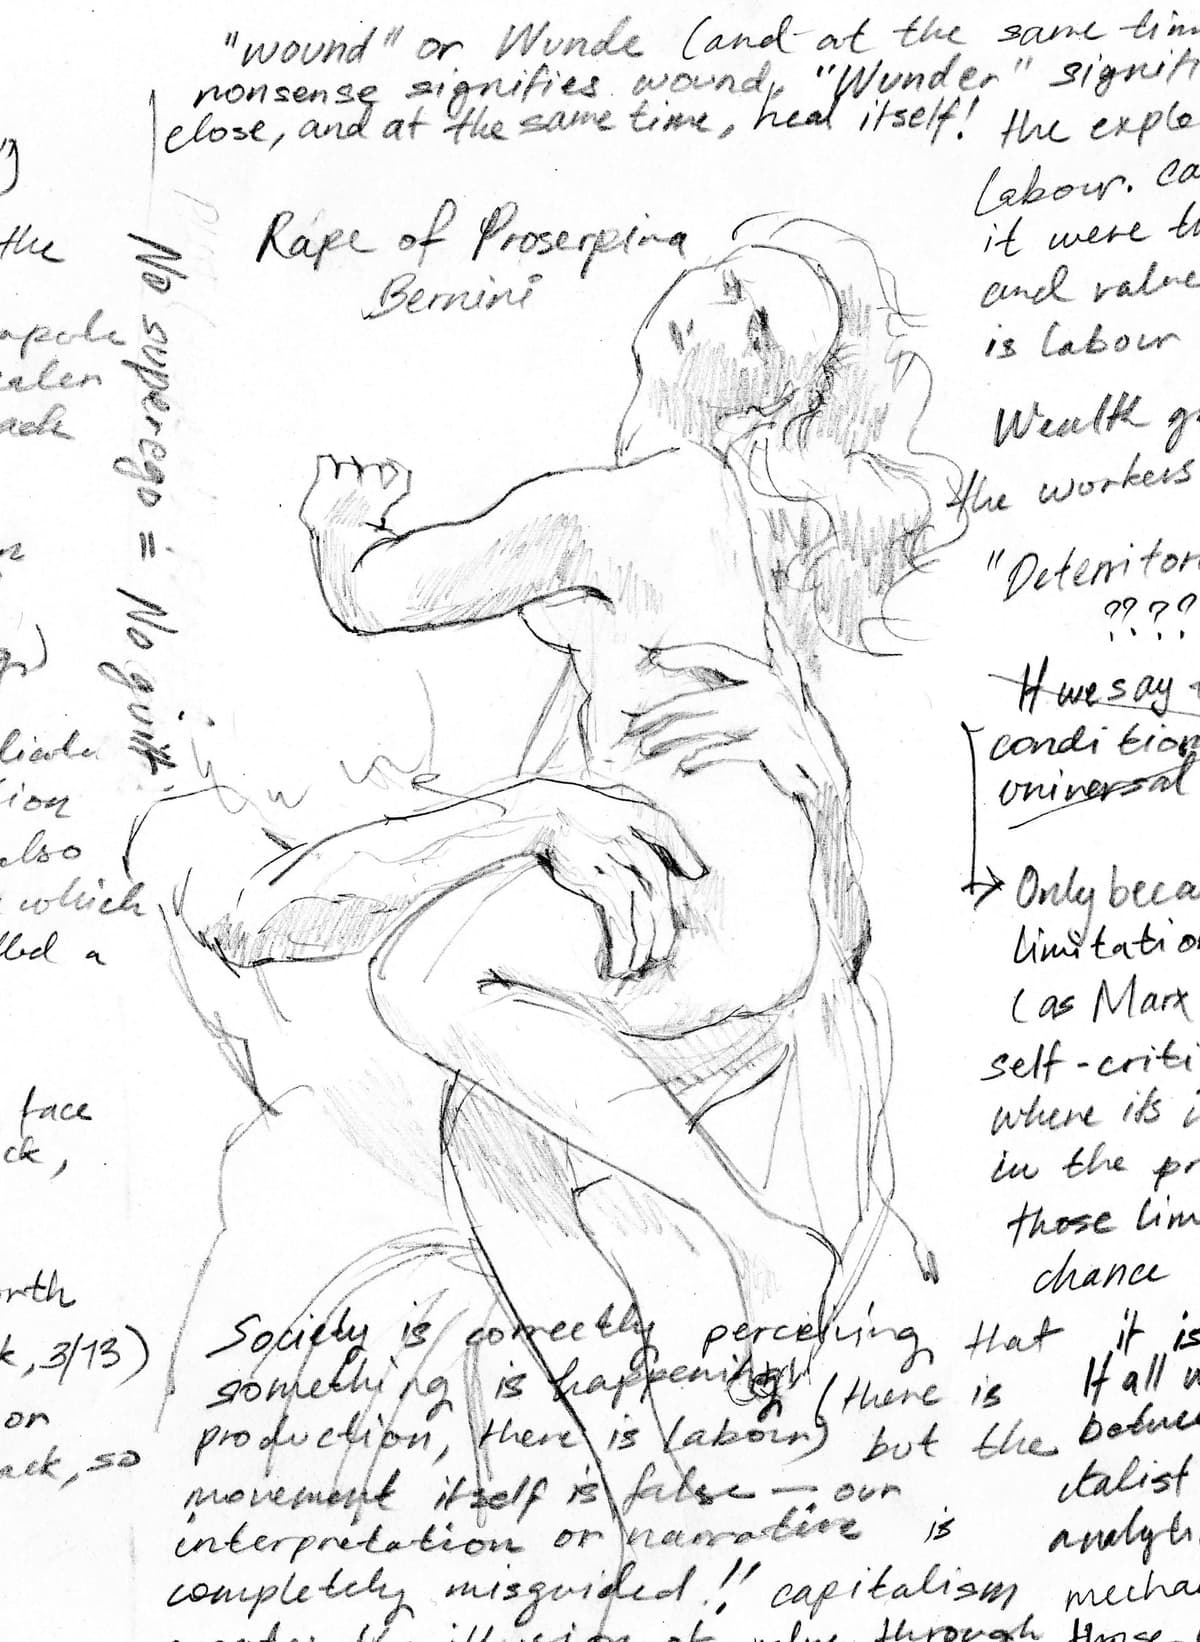 "wound" or Wunde (and at the same tim
nonsense signifies wound, "Wunder" signifi
close, and at the same time, heal itself!
Rape of Proserpina
Bernini
No superego = No guilt
the
ack
liate
tion
also
which
lled a
face
ck,
orth
k, 3/13)
or
ack, so
the explo
labour. ca
it were th
and value
is labour
Wealth g
the workers
"Deterritor
????
If we say
condition
universal
Only beca
limitation
(as Marx
self-criti
where its i
in the pr
those lim
chance
it is
If all w
betwe
italist
analyti
mecha
those
Society is correctly perceiving that
something is happening (there is
production, there is labour) but the
movement itself is false — our
interpretation or narrative is
completely misguided!! capitalism
creates the illusion of value through